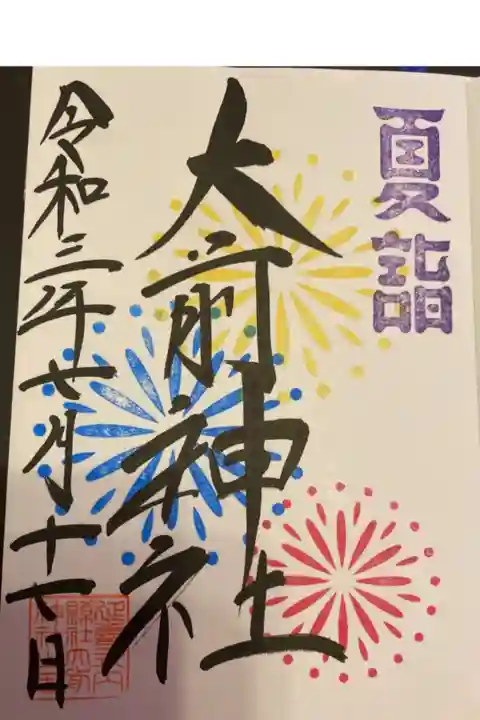 夏詣
大前神社
令和三年七月十七日